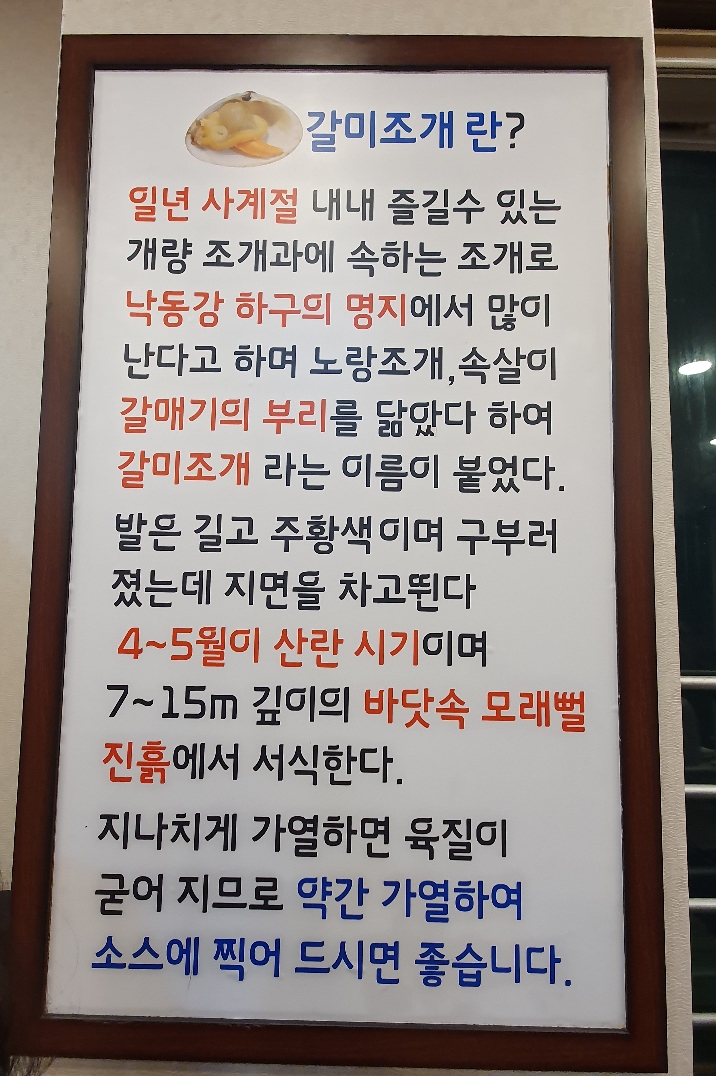 갈미조개 란?
일년 사계절 내내 즐길수 있는
개량 조개과에 속하는 조개로
낙동강 하구의 명지에서 많이
난다고 하며 노랑조개,속살이
갈매기의 부리를 닮았다 하여
갈미조개 라는 이름이 붙었다.
발은 길고 주황색이며 구부러
졌는데 지면을 차고뛴다
4~5월이 산란 시기이며
7~15m 깊이의 바닷속 모래뻘
진흙에서 서식한다.
지나치게 가열하면 육질이
굳어 지므로 약간 가열하여
소스에 찍어 드시면 좋습니다.